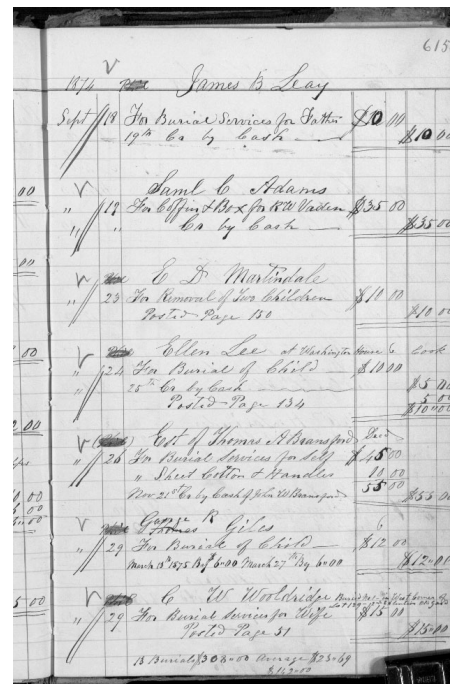 615
1874 James B Leay
Sept 18 For Burial Services for Father $10 00
19th Cr by Cash $10 00
Saml C Adams
" 19 For Coffin & Box for R W Vaden $35 00
" " Cr by Cash $35 00
E D Martindale
" 23 For Removal of Two Children $10 00
Posted Page 150 $10 00
Ellen Lee at Washington House 6 Cook
" 24 For Burial of Child $10 00
" 25th Cr by Cash $5 00
Posted Page 134 5 00
$10 00
Est of Thomas A Bransford Decd
" 26 For Burial Services for Self $45 00
" Sheet Cotton & Handles 10 00
Nov 21st Cr by Cash of John W Bransford 55 00 $55 00
George R
Giles 6
" 29 For Burial of Child $12 00
March 13th 1875 By $6 00 March 27th By 6 00 $12 00
C W Wooldridge
" 29 For Burial Services for Wife $15 00
Posted Page 31 $15 00
13 Burials $308 00 Average $23 69